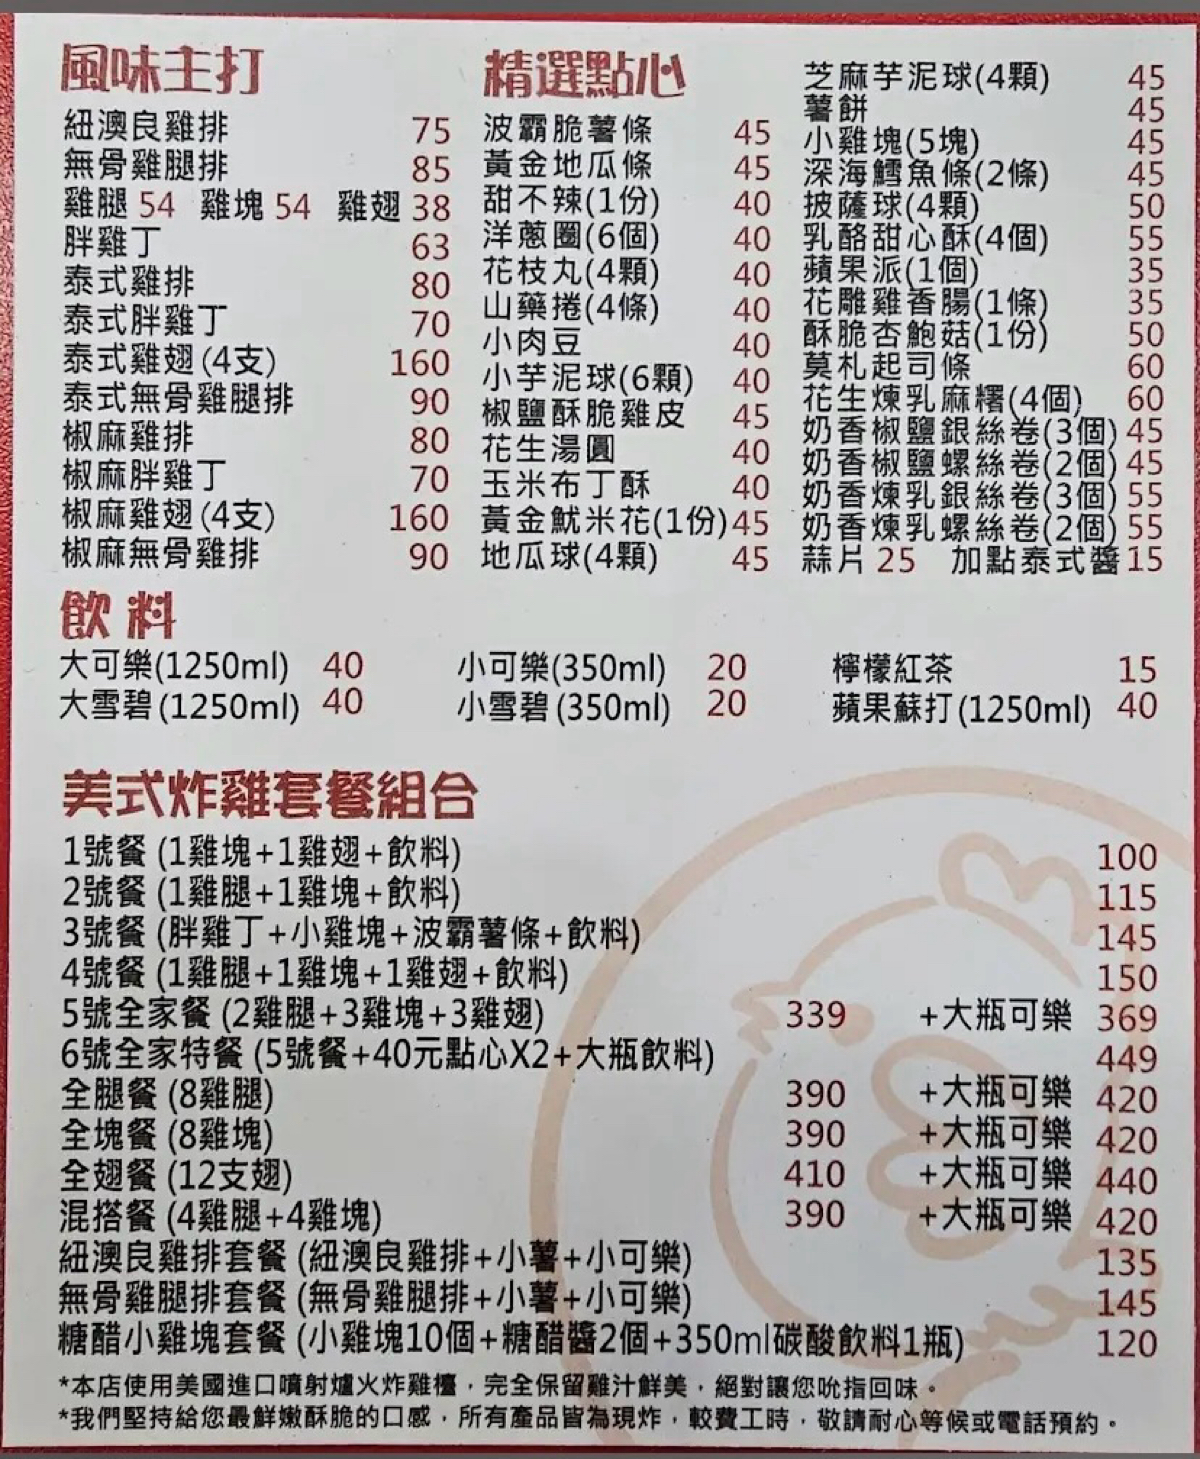 風味主打
紐澳良雞排 75
無骨雞腿排 85
雞腿 54 雞塊 54 雞翅 38
胖雞丁 63
泰式雞排 80
泰式胖雞丁 70
泰式雞翅(4支) 160
泰式無骨雞腿排 90
椒麻雞排 80
椒麻胖雞丁 70
椒麻雞翅(4支) 160
椒麻無骨雞排 90
精選點心
波霸脆薯條 45
黃金地瓜條 45
甜不辣(1份) 40
洋蔥圈(6個) 40
花枝丸(4顆) 40
山藥捲(4條) 40
小肉豆 40
小芋泥球(6顆) 40
椒鹽酥脆雞皮 45
花生湯圓 40
玉米布丁酥 40
黃金魷米花(1份) 45
地瓜球(4顆) 45
芝麻芋泥球(4顆) 45
薯餅 45
小雞塊(5塊) 45
深海鱈魚條(2條) 45
披薩球(4顆) 50
乳酪甜心酥(4個) 55
蘋果派(1個) 35
花雕雞香腸(1條) 35
酥脆杏鮑菇(1份) 50
莫札起司條 60
花生煉乳麻糬(4個) 60
奶香椒鹽銀絲卷(3個) 45
奶香椒鹽螺絲卷(2個) 45
奶香煉乳銀絲卷(3個) 55
奶香煉乳螺絲卷(2個) 55
蒜片 25 加點泰式醬 15
飲料
大可樂(1250ml) 40 小可樂(350ml) 20 檸檬紅茶 15
大雪碧(1250ml) 40 小雪碧(350ml) 20 蘋果蘇打(1250ml) 40
美式炸雞套餐組合
1號餐 (1雞塊+1雞翅+飲料) 100
2號餐 (1雞腿+1雞塊+飲料) 115
3號餐 (胖雞丁+小雞塊+波霸薯條+飲料) 145
4號餐 (1雞腿+1雞塊+1雞翅+飲料) 150
5號全家餐 (2雞腿+3雞塊+3雞翅) 339 +大瓶可樂 369
6號全家特餐 (5號餐+40元點心X2+大瓶飲料) 449
全腿餐 (8雞腿) 390 +大瓶可樂 420
全塊餐 (8雞塊) 390 +大瓶可樂 420
全翅餐 (12支翅) 410 +大瓶可樂 440
混搭餐 (4雞腿+4雞塊) 390 +大瓶可樂 420
紐澳良雞排套餐 (紐澳良雞排+小薯+小可樂) 135
無骨雞腿排套餐 (無骨雞腿排+小薯+小可樂) 145
糖醋小雞塊套餐 (小雞塊10個+糖醋醬2個+350ml碳酸飲料1瓶) 120
*本店使用美國進口噴射爐火炸雞檯，完全保留雞汁鮮美，絕對讓您吮指回味。
*我們堅持給您最鮮嫩酥脆的口感，所有產品皆為現炸，較費工時，敬請耐心等候或電話預約。